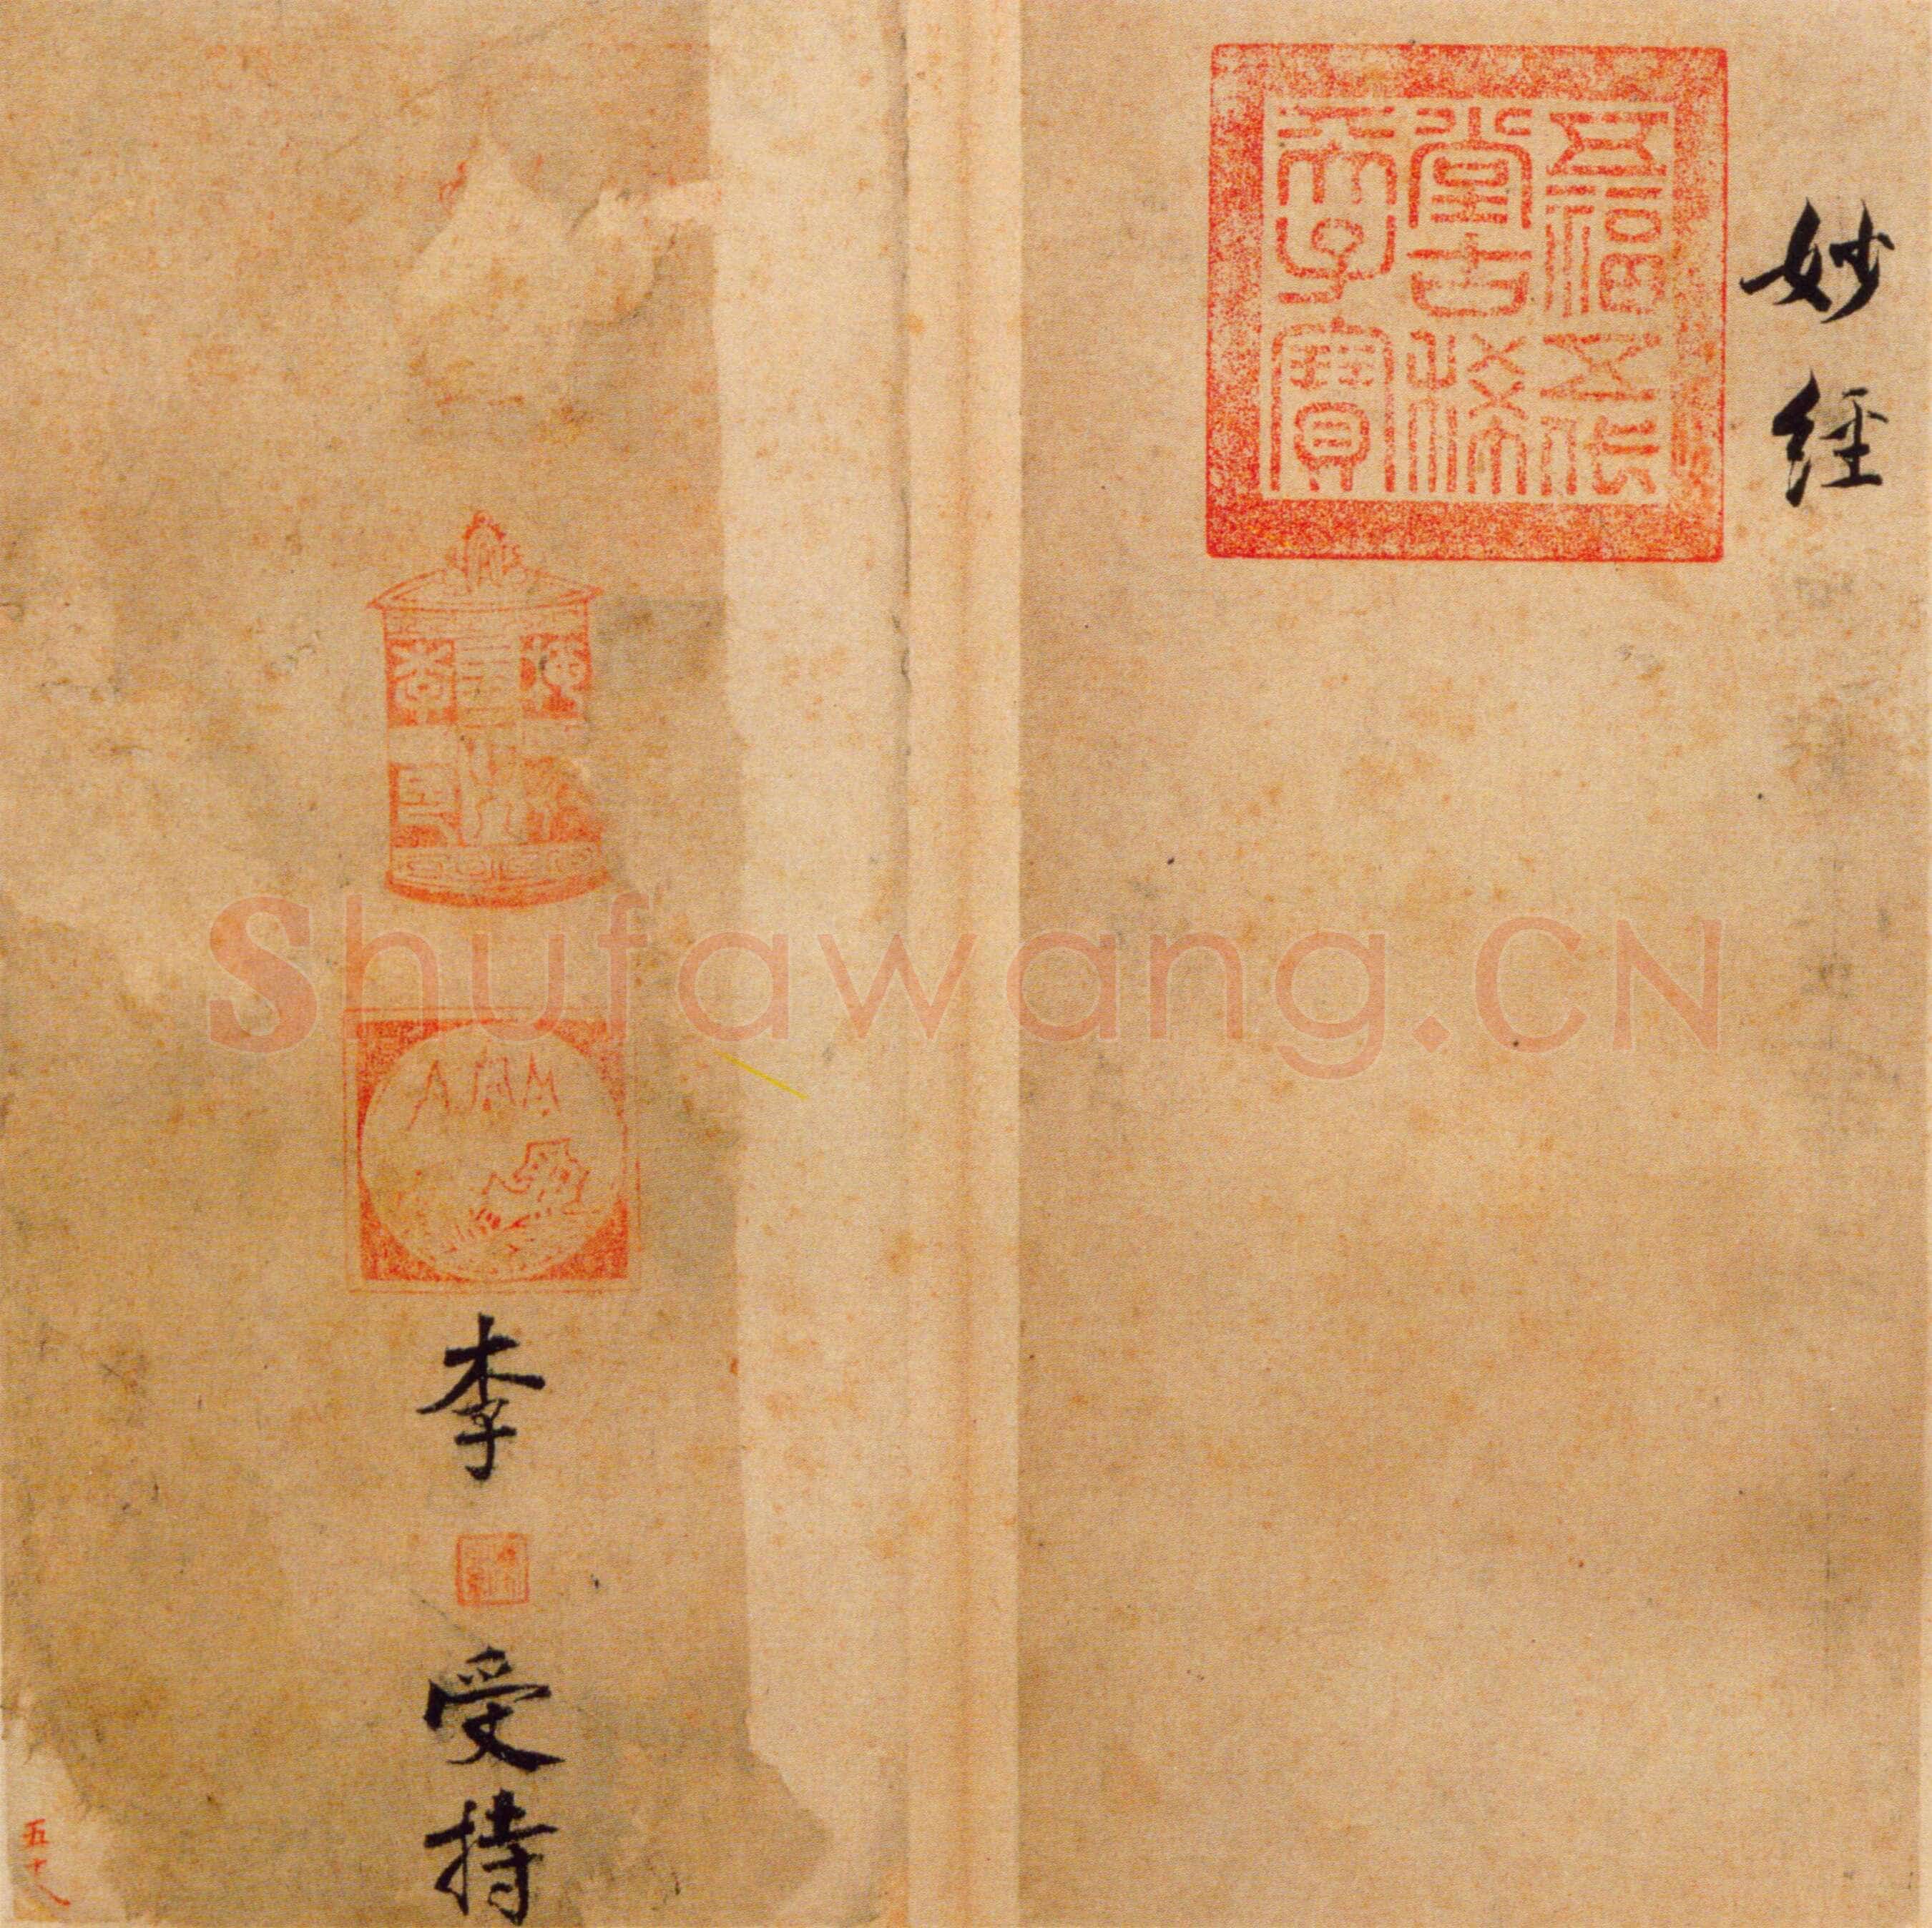 妙經
五福五代
堂古稀
天子寶
李
受持
五十八
Shufawang.CN